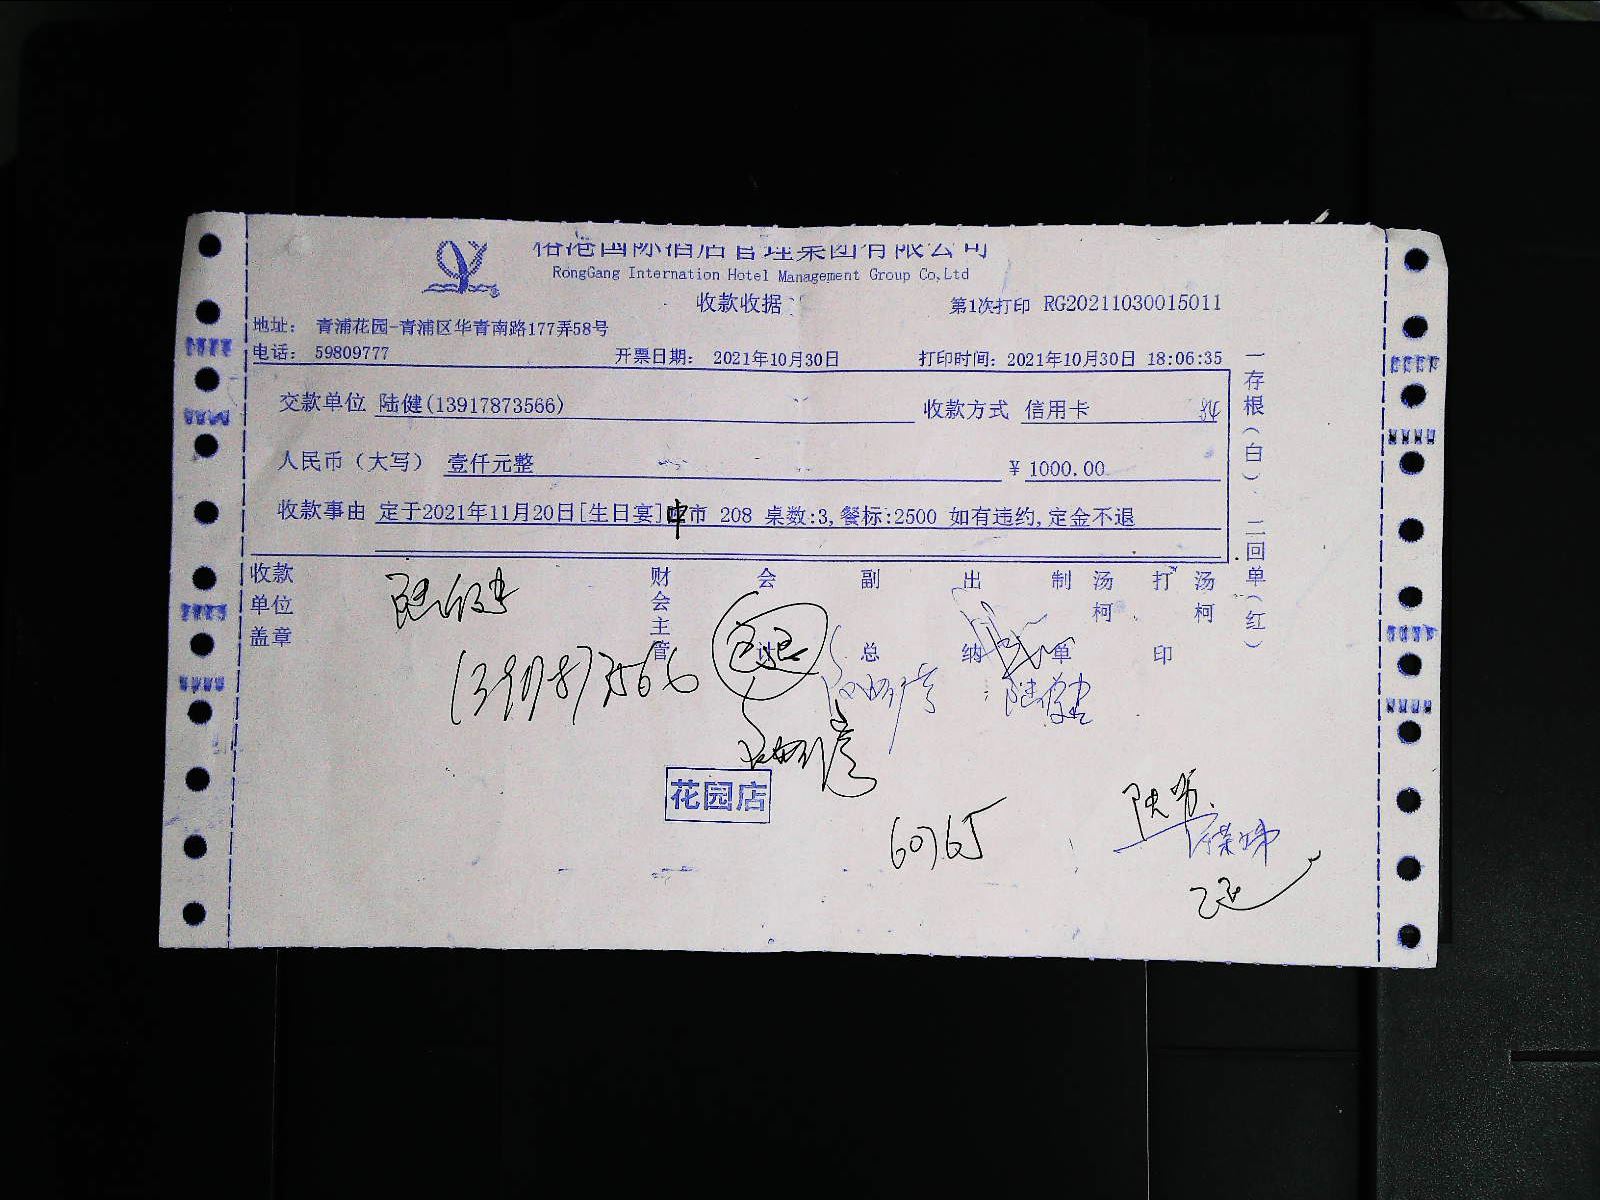 榕港国际酒店管理集团有限公司
RongGang Internation Hotel Management Group Co,Ltd
收款收据
第1次打印 RG20211030015011
地址： 青浦花园-青浦区华青南路177弄58号
电话： 59809777 开票日期： 2021年10月30日 打印时间：2021年10月30日 18:06:35
交款单位 陆健(13917873566) 收款方式 信用卡
人民币（大写） 壹仟元整 ¥ 1000.00
收款事由 定于2021年11月20日[生日宴]中市 208 桌数:3,餐标:2500 如有违约,定金不退
一存根（白） 二回单（红）
收款单位盖章 财会主管 会计 副总 出纳 制单 汤柯 打印 汤柯
陆健
13917873566
已退
陆健
花园店